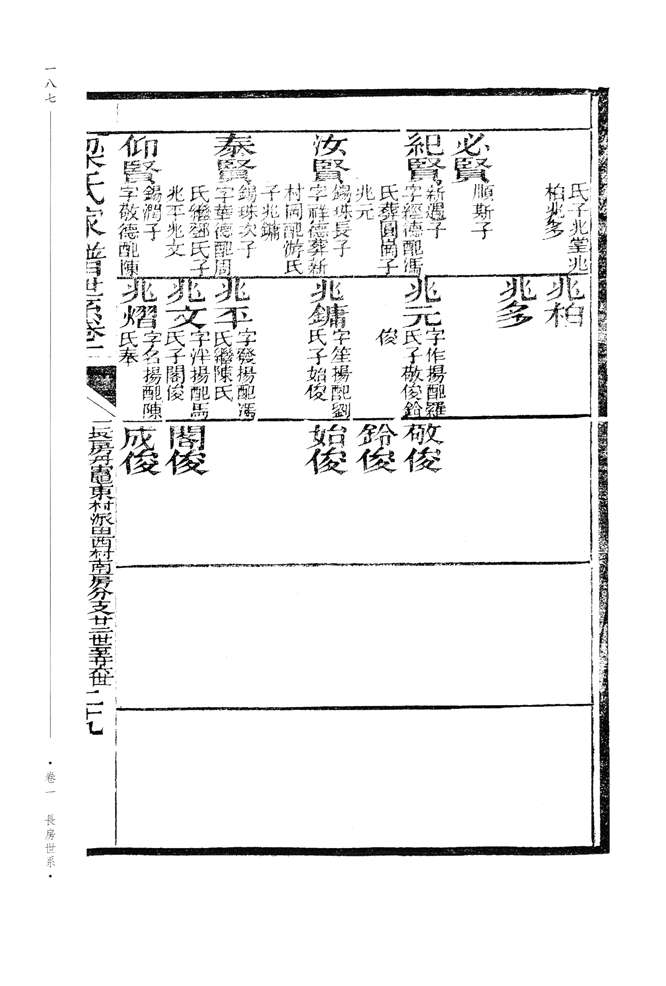 氏子兆堂兆
柏兆多
必賢
順斯子
紀賢
新遇子
字經德配馮
氏葬圓崗子
兆元
汝賢
錫珠長子
字祥德葬新
村同配游氏
子兆鏞
泰賢
錫珠次子
字華德配周
氏繼鄧氏子
兆平兆文
仰賢
錫潤子
字敬德配陳
兆柏
兆多
兆元
字作揚配羅
氏子敬俊鈴
俊
兆鏞
字笙揚配劉
氏子始俊
兆平
字發揚配馮
氏繼陳氏
兆文
字泮揚配馬
氏子閣俊
兆熠
字名揚配陳
氏奉
敬俊
鈴俊
始俊
閣俊
成俊
梁氏家譜世系卷一
長房丹竈東村派由西村南房分支廿二世至廿六世
二十九
一八七
·卷一 長房世系·